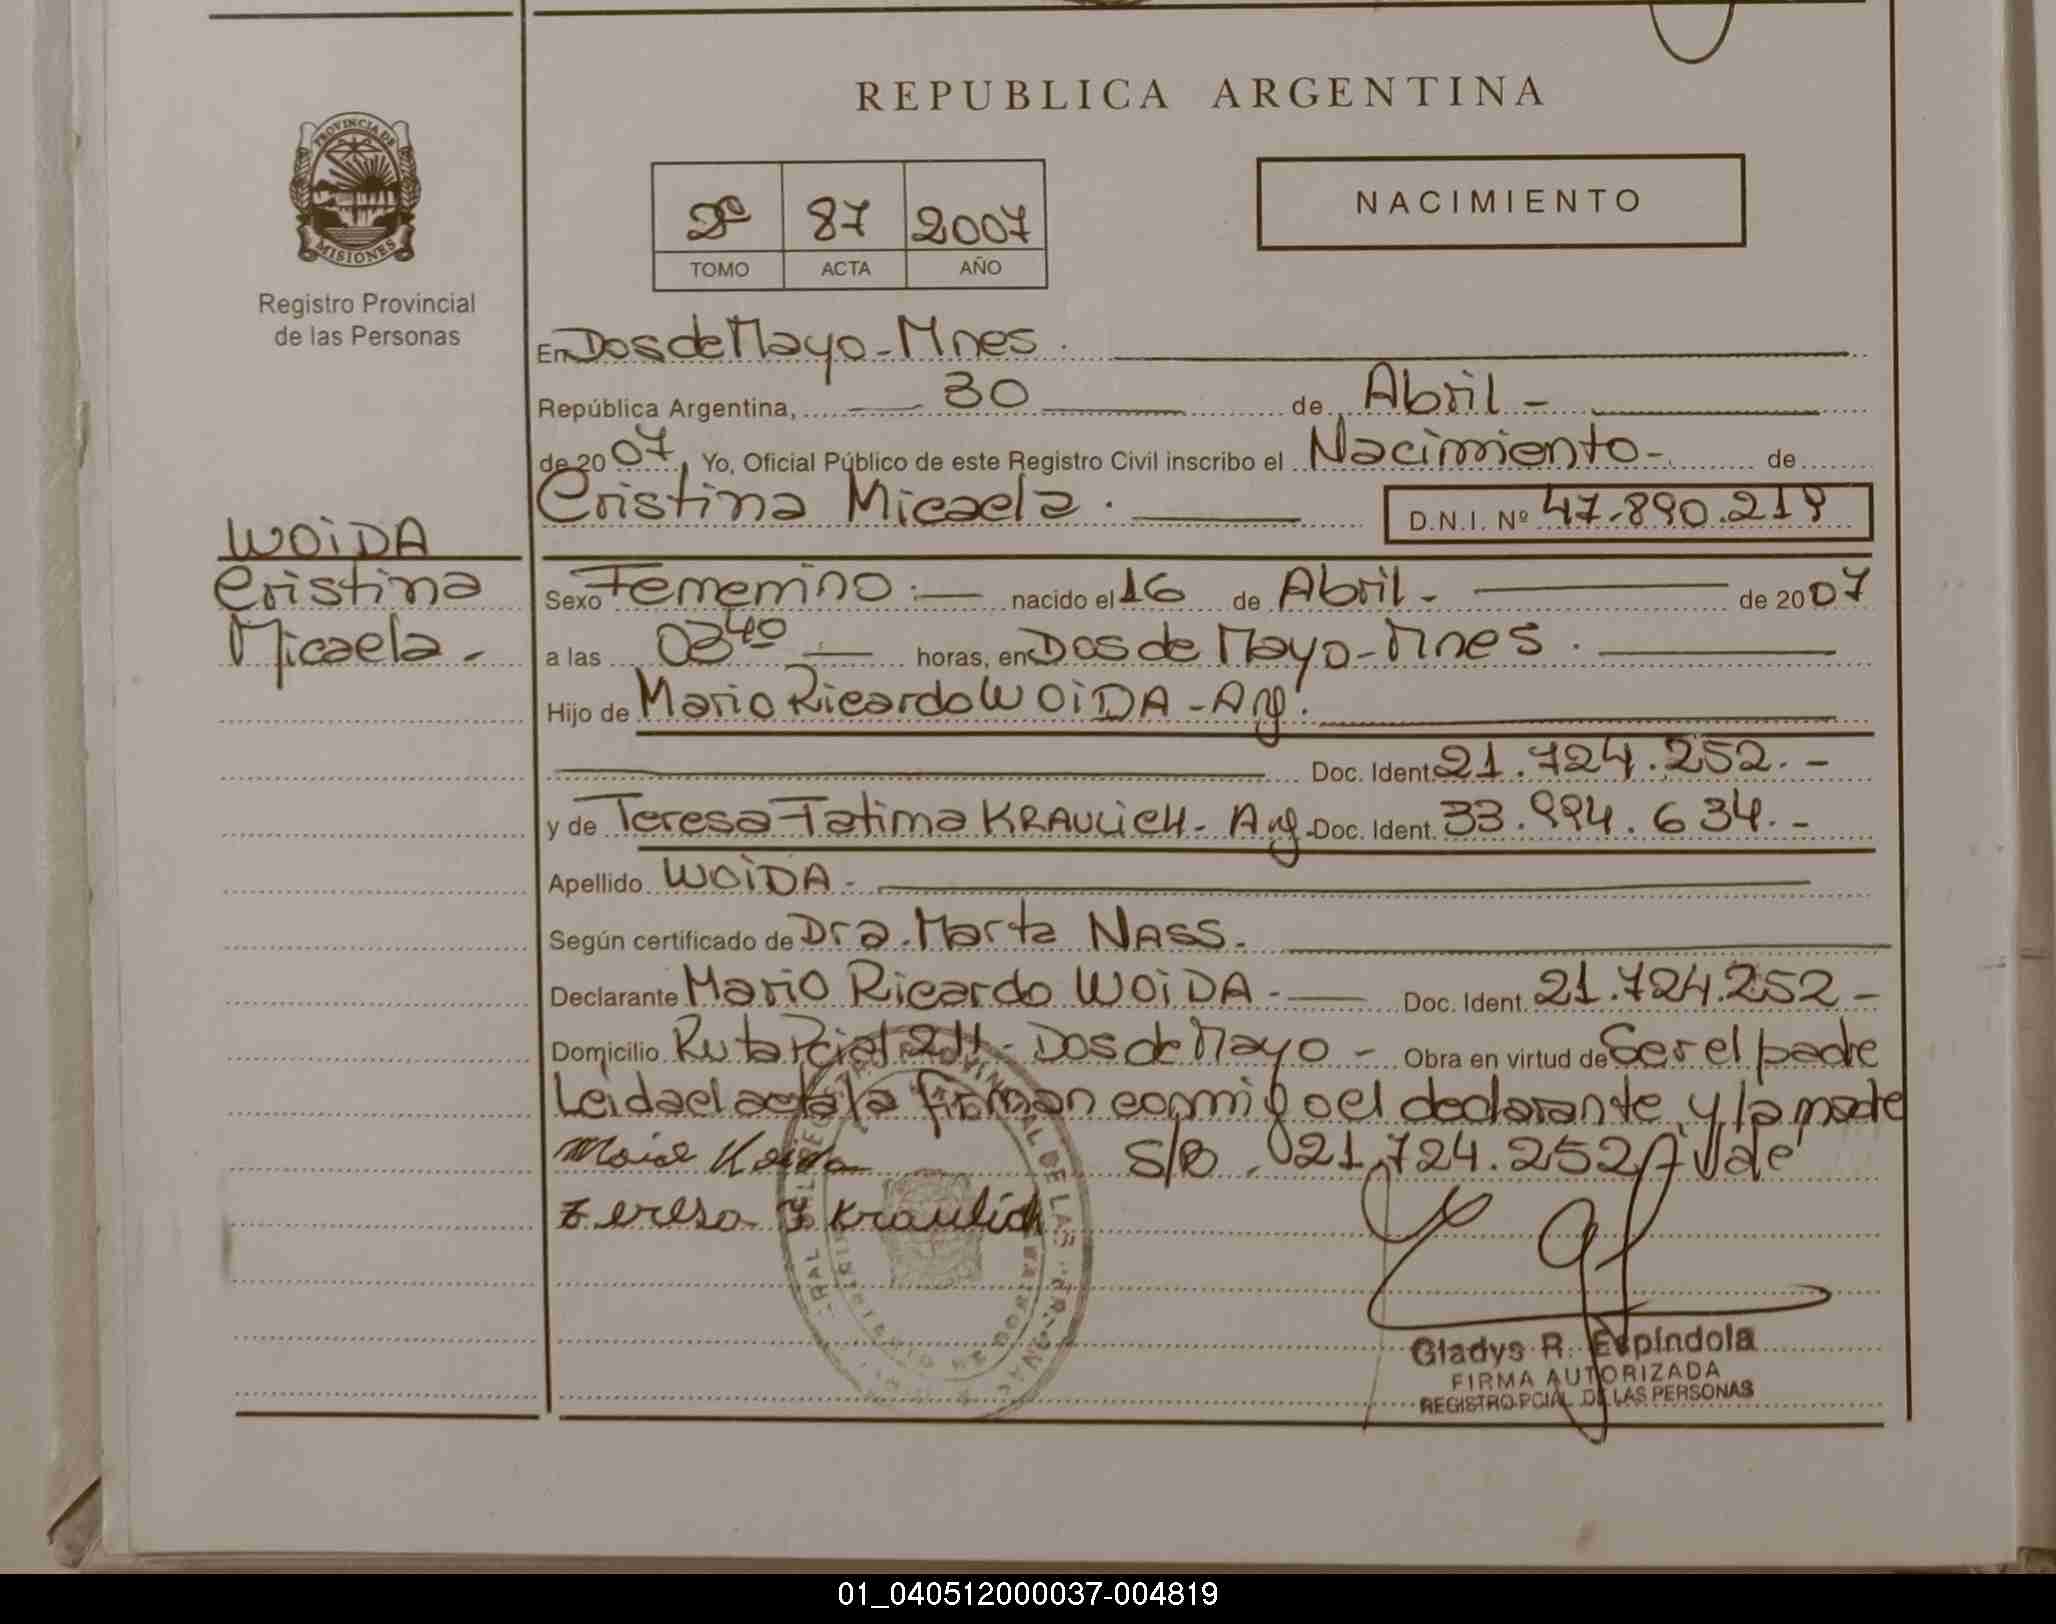 REPUBLICA ARGENTINA
PROVINCIA DE
MISIONES
Registro Provincial
de las Personas
2º 87 2007
TOMO ACTA AÑO
NACIMIENTO
En Dos de Mayo - Mnes.
República Argentina, 30 de Abril -
de 2007, Yo, Oficial Público de este Registro Civil inscribo el Nacimiento - de
Cristina Micaela. D.N.I. Nº 47.890.219
WOiDA
Cristina
Micaela -
Sexo Femenino. - nacido el 16 de Abril - de 2007
a las 03 40 horas, en Dos de Mayo - Mnes.
Hijo de Mario Ricardo WOiDA - Arg.
Doc. Ident. 21.724.252. -
y de Teresa Fatima KRAULiCH - Arg - Doc. Ident. 33.994.634. -
Apellido WOiDA -
Según certificado de Dra. Marta NASS.
Declarante Mario Ricardo WOiDA - Doc. Ident. 21.724.252 -
Domicilio Ruta Pcial 211 - Dos de Mayo - Obra en virtud de Ser el padre
Leida el acta la firman conmigo el declarante y la madre
S/B. 21.724.252 Vale
Teresa F Kraulich
Gladys R. Espíndola
FIRMA AUTORIZADA
REGISTRO PCIAL DE LAS PERSONAS
01_040512000037-004819